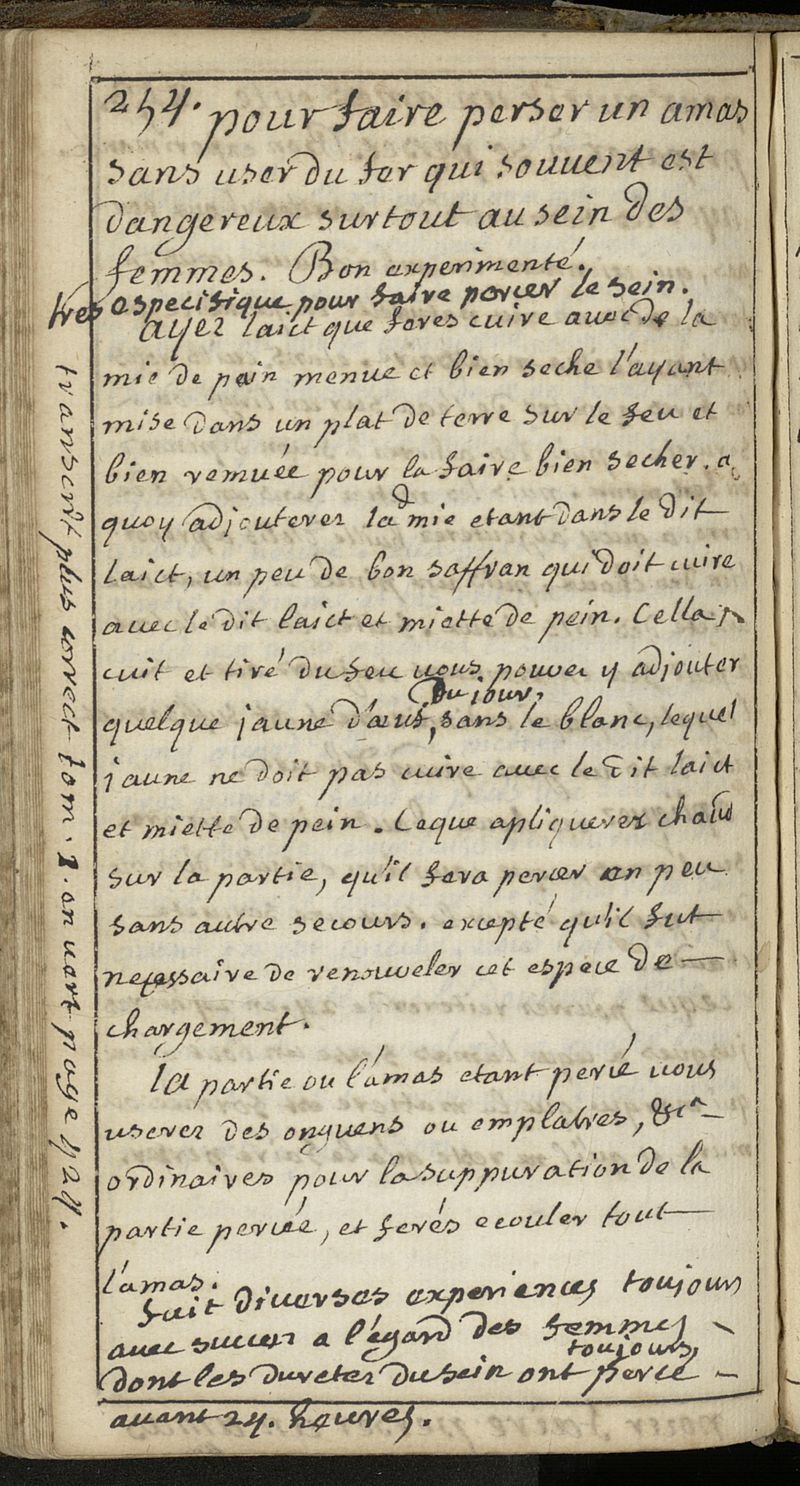 254. pour faire perser un amas
sans user du fer qui souvent est
dangereux surtout au sein des
femmes. Bon experimenté.
tres especifique pour faire percer le sein.
ayez laict que feres cuire avec de la
mie de pain menue et bien seche l'ayant
mise dans un plat de terre sur le feu et
bien remuée pour la faire bien secher. a
quoy adjouterez lad mie etant dans le dit
laict, un peu de bon saffran qui doit cuire
avec le dit laict et miette de pein. Cella
cuit et tiré du feu vous pouvez y adjouter
du jour,
quelque jaune d'œuf, sans le blanc, lequel
jaune ne doit pas cuire avec le dit laict
et miette de pein. Ceque apliquerez chaud
sur la partie, qu'il fera percer en peu
sans autre secours. excepté qu'il fut
necessaire de renouveler cet espece de
chargement.
la partie ou l'amas etant percé vous
userez des onguens ou emplatres, &ca
ordinaires pour la suppuration de la
partie percée, et ferés ecouler tout
l'amas.
fait diverses experiences toujours
avec succez a l'égard des femmes
toujours,
dont les duretez du sein ont percé
avant 24. heures.
transcrit plus correct tom. 1. en vert page 424.